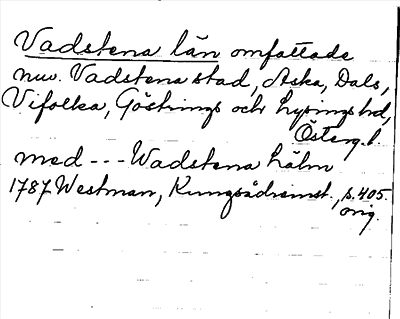 Vadstena län omfattade
nuv. Vadstena stad, Aska, Dals,
Vifolka, Göstrings och Lysings hd,
Österg. l.
med --- Wadstena Lähn
1787 Westman, Kungsådremst., s. 405.
orig.